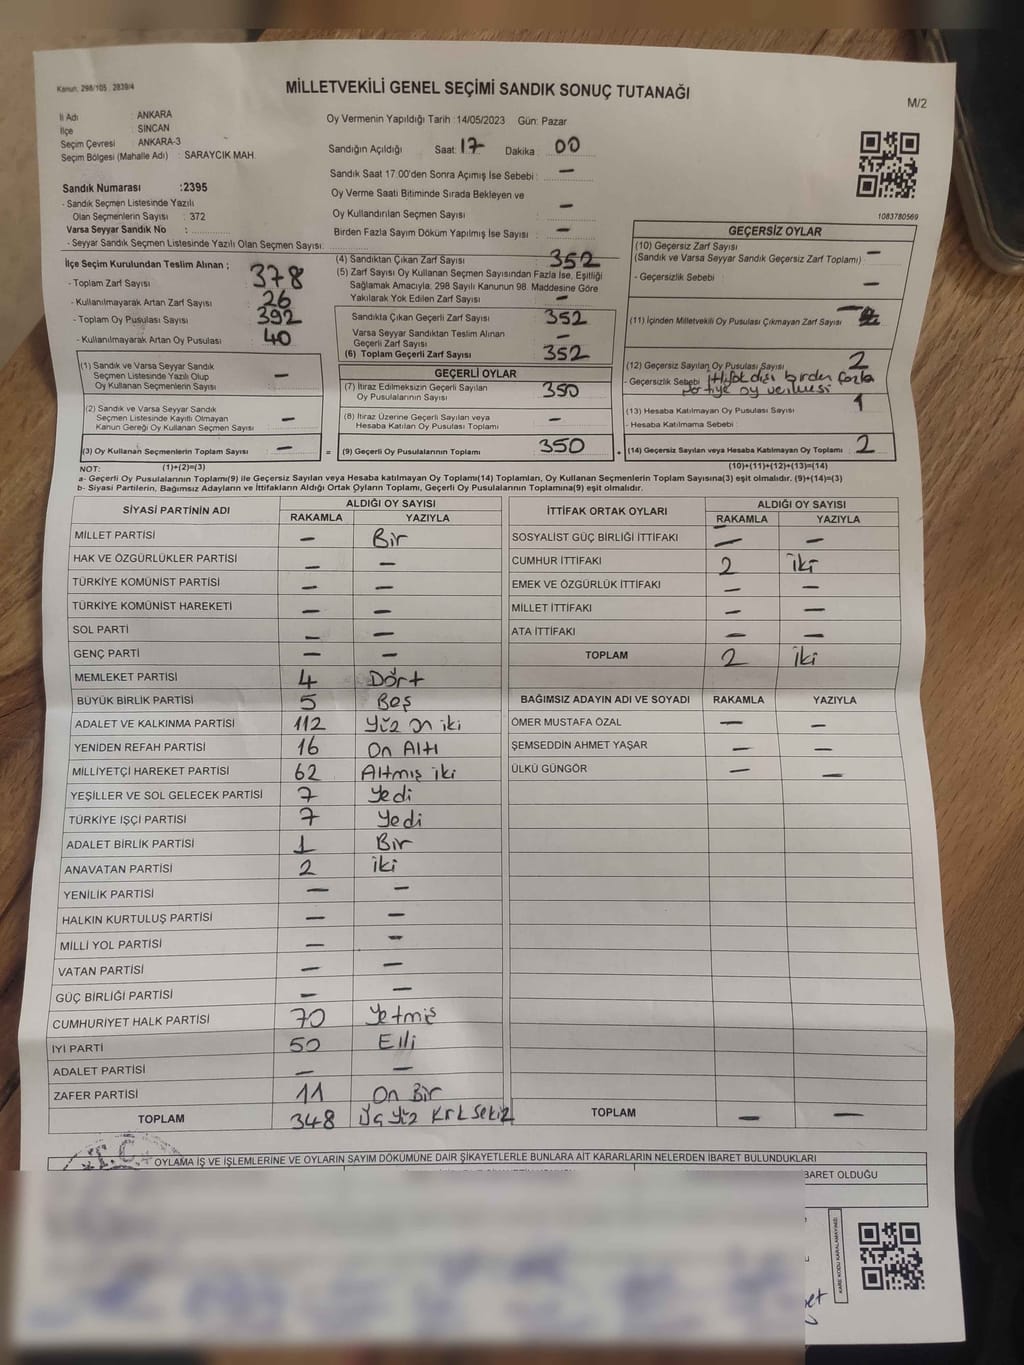 Kanun. 298/105 . 2839/4
MİLLETVEKİLİ GENEL SEÇİMİ SANDIK SONUÇ TUTANAĞI
M/2
İl Adı : ANKARA
İlçe : SİNCAN
Seçim Çevresi : ANKARA-3
Seçim Bölgesi (Mahalle Adı) : SARAYCIK MAH.
Oy Vermenin Yapıldığı Tarih :14/05/2023 Gün: Pazar
Sandığın Açıldığı Saat: 17 Dakika : 00
Sandık Saat 17.00'den Sonra Açımış İse Sebebi : —
Oy Verme Saati Bitiminde Sırada Bekleyen ve
Oy Kullandırılan Seçmen Sayısı : —
Birden Fazla Sayım Döküm Yapılmış İse Sayısı : —
Sandık Numarası :2395
- Sandık Seçmen Listesinde Yazılı
Olan Seçmenlerin Sayısı : 372
Varsa Seyyar Sandık No :
- Seyyar Sandık Seçmen Listesinde Yazılı Olan Seçmen Sayısı:
1083780569
İlçe Seçim Kurulundan Teslim Alınan ;
- Toplam Zarf Sayısı : 378
- Kullanılmayarak Artan Zarf Sayısı : 26
- Toplam Oy Pusulası Sayısı : 392
- Kullanılmayarak Artan Oy Pusulası : 40
(1) Sandık ve Varsa Seyyar Sandık
Seçmen Listesinde Yazılı Olup
Oy Kullanan Seçmenlerin Sayısı : —
(2) Sandık ve Varsa Seyyar Sandık
Seçmen Listesinde Kayıtlı Olmayan
Kanun Gereği Oy Kullanan Seçmen Sayısı : —
(3) Oy Kullanan Seçmenlerin Toplam Sayısı : —
(4) Sandıktan Çıkan Zarf Sayısı : 352
(5) Zarf Sayısı Oy Kullanan Seçmen Sayısından Fazla İse, Eşitliği
Sağlamak Amacıyla; 298 Sayılı Kanunun 98. Maddesine Göre
Yakılarak Yok Edilen Zarf Sayısı : —
Sandıkta Çıkan Geçerli Zarf Sayısı : 352
Varsa Seyyar Sandıktan Teslim Alınan
Geçerli Zarf Sayısı : —
(6) Toplam Geçerli Zarf Sayısı : 352
GEÇERLİ OYLAR
(7) İtiraz Edilmeksizin Geçerli Sayılan
Oy Pusulalarının Sayısı : 350
(8) İtiraz Üzerine Geçerli Sayılan veya
Hesaba Katılan Oy Pusulası Toplamı : —
= (9) Geçerli Oy Pusulalarının Toplamı : 350
GEÇERSİZ OYLAR
(10) Geçersiz Zarf Sayısı : —
(Sandık ve Varsa Seyyar Sandık Geçersiz Zarf Toplamı)
- Geçersizlik Sebebi : —
(11) İçinden Milletvekili Oy Pusulası Çıkmayan Zarf Sayısı : —
(12) Geçersiz Sayılan Oy Pusulası Sayısı : 2
- Geçersizlik Sebebi : ittifak dışı birden fazla
partiye oy verilmesi
(13) Hesaba Katılmayan Oy Pusulası Sayısı : 1
- Hesaba Katılmama Sebebi :
+ (14) Geçersiz Sayılan veya Hesaba Katılmayan Oy Toplamı : 2
NOT: (1)+(2)=(3) (10)+(11)+(12)+(13)=(14)
a- Geçerli Oy Pusulalarının Toplamı(9) ile Geçersiz Sayılan veya Hesaba katılmayan Oy Toplamı(14) Toplamları, Oy Kullanan Seçmenlerin Toplam Sayısına(3) eşit olmalıdır. (9)+(14)=(3)
b- Siyasi Partilerin, Bağımsız Adayların ve İttifakların Aldığı Ortak Oyların Toplamı, Geçerli Oy Pusulalarının Toplamına(9) eşit olmalıdır.
SİYASİ PARTİNİN ADI ALDIĞI OY SAYISI
RAKAMLA YAZIYLA
MİLLET PARTİSİ — Bir
HAK VE ÖZGÜRLÜKLER PARTİSİ — —
TÜRKİYE KOMÜNİST PARTİSİ — —
TÜRKİYE KOMÜNİST HAREKETİ — —
SOL PARTİ — —
GENÇ PARTİ — —
MEMLEKET PARTİSİ 4 Dört
BÜYÜK BİRLİK PARTİSİ 5 Beş
ADALET VE KALKINMA PARTİSİ 112 Yüz On iki
YENİDEN REFAH PARTİSİ 16 On Altı
MİLLİYETÇİ HAREKET PARTİSİ 62 Altmış iki
YEŞİLLER VE SOL GELECEK PARTİSİ 7 Yedi
TÜRKİYE İŞÇİ PARTİSİ 7 Yedi
ADALET BİRLİK PARTİSİ 1 Bir
ANAVATAN PARTİSİ 2 iki
YENİLİK PARTİSİ — —
HALKIN KURTULUŞ PARTİSİ — —
MİLLİ YOL PARTİSİ — —
VATAN PARTİSİ — —
GÜÇ BİRLİĞİ PARTİSİ — —
CUMHURİYET HALK PARTİSİ 70 Yetmiş
İYİ PARTİ 50 Elli
ADALET PARTİSİ — —
ZAFER PARTİSİ 11 On Bir
TOPLAM 348 Üç Yüz Kırk Sekiz
İTTİFAK ORTAK OYLARI ALDIĞI OY SAYISI
RAKAMLA YAZIYLA
SOSYALİST GÜÇ BİRLİĞİ İTTİFAKI — —
CUMHUR İTTİFAKI 2 iki
EMEK VE ÖZGÜRLÜK İTTİFAKI — —
MİLLET İTTİFAKI — —
ATA İTTİFAKI — —
TOPLAM 2 iki
BAĞIMSIZ ADAYIN ADI VE SOYADI RAKAMLA YAZIYLA
ÖMER MUSTAFA ÖZAL — —
ŞEMSEDDİN AHMET YAŞAR — —
ÜLKÜ GÜNGÖR — —
TOPLAM — —
T.C.
OYLAMA İŞ VE İŞLEMLERİNE VE OYLARIN SAYIM DÖKÜMÜNE DAİR ŞİKAYETLERLE BUNLARA AİT KARARLARIN NELERDEN İBARET BULUNDUKLARI
BARET OLDUĞU
KARE KODU KARALAMAYINIZ!